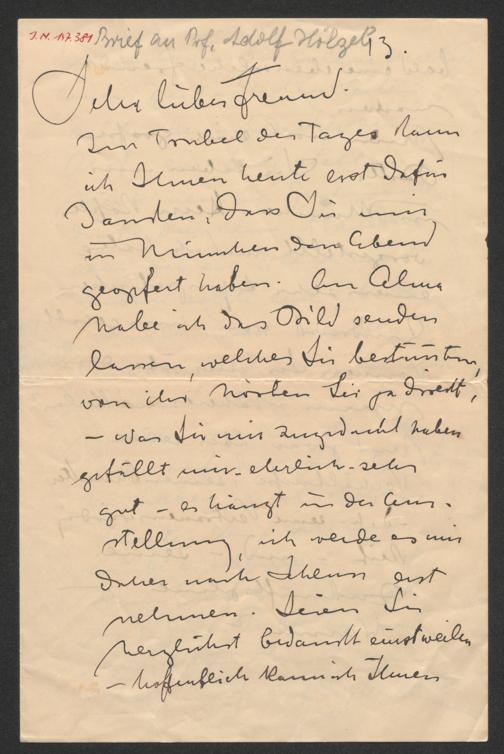 J.N. 117.381
Brief an Prof. Adolf Hölzel
13.
Sehr lieber Freund.
Im Trubel des Tages kann
ich Ihnen heute erst dafür
danken, dass Sie mir
in München den Abend
geopfert haben. An Alma
habe ich das Bild senden
lassen, welches Sie bestimmten,
von ihr hörten Sie ja direkt,
– was Sie mir zugedacht haben
gefällt mir - ehrlich - sehr
gut – es hängt in der Aus-
stellung, ich werde es mir
daher nach Schluss erst
nehmen. Seien Sie
herzlichst bedankt einstweilen
– hoffentlich kann ich Ihnen